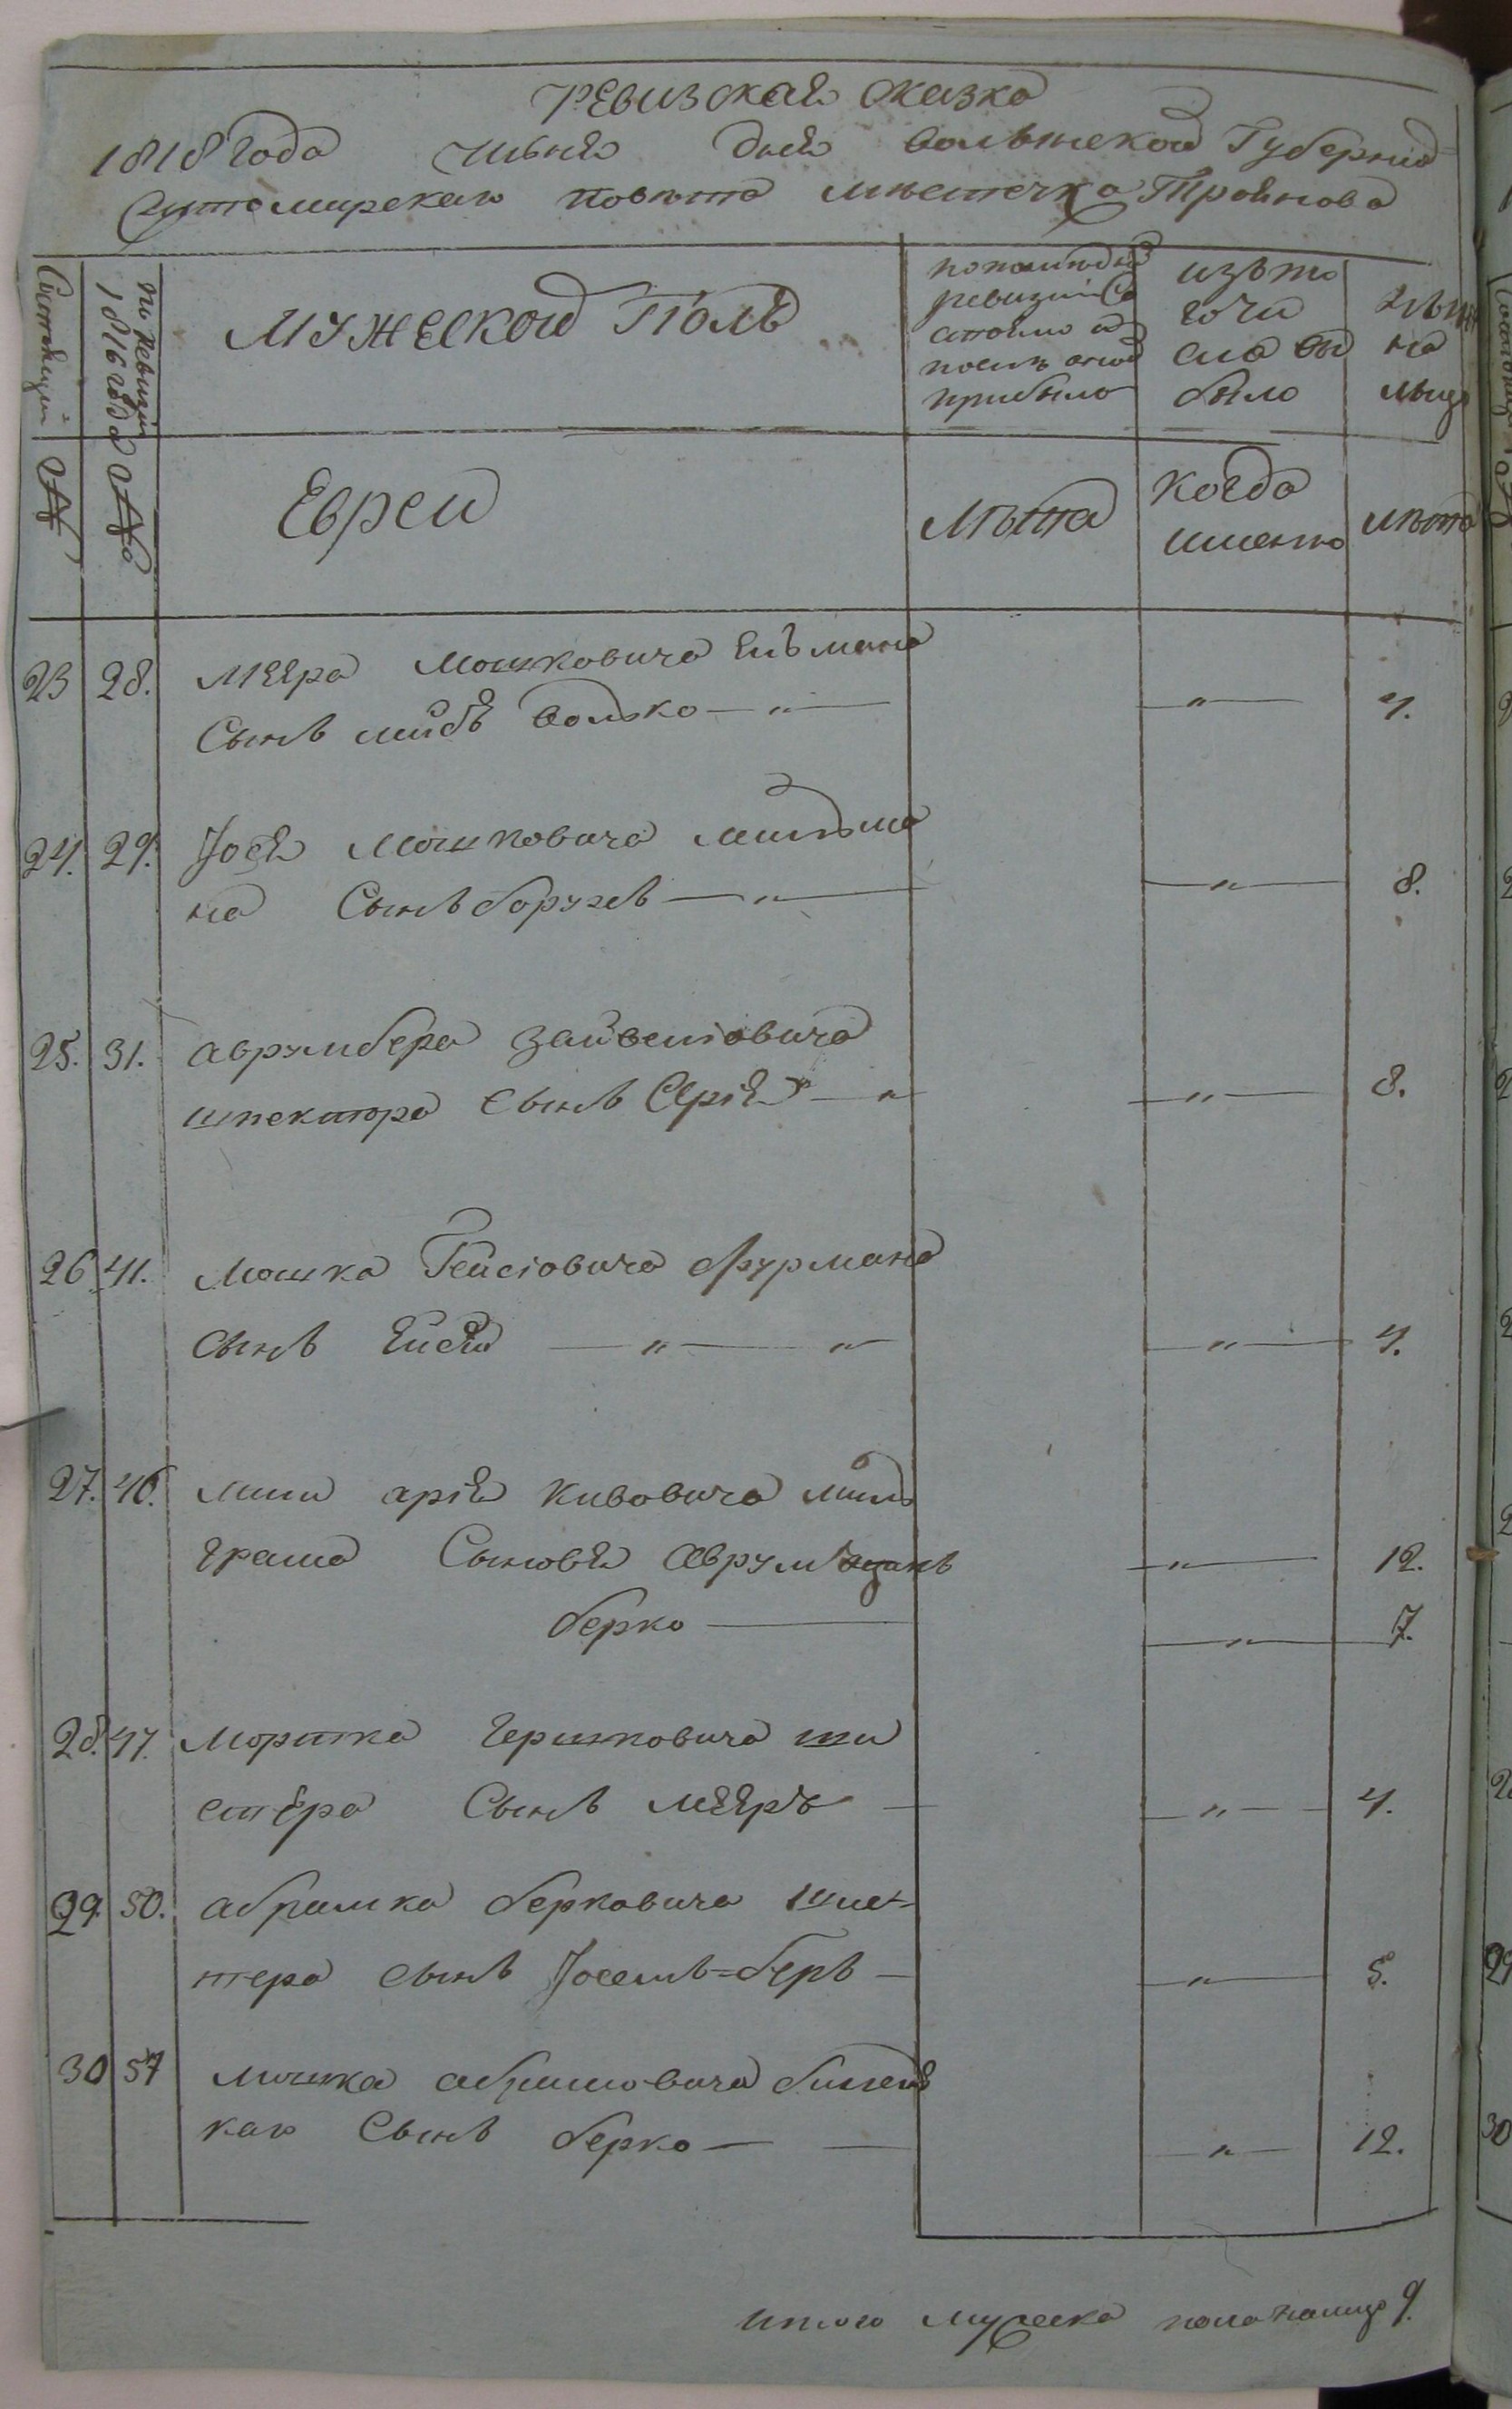 Ревизская сказка
1818 года Июня дня Волынской Губернии
Житомирскаго повѣта мѣстечка Троянова
Состоящій №
По ревизіи 1816 года №
Мужескои Полъ
по послѣдней
ревизіи со
стояло и
послѣ оной
прибыло
изъ то
го чи
сла вы
было
нынѣ
на
лицо
Евреи
лѣта
когда
именно
лѣта
23 28. Меера Мошковича
Сынъ Лейбъ Волько — " — " — 4.
24. 29. Іося Мошковича Мильма
на Сынъ Борухъ — " — " — 8.
25. 31. Аврумбера Зайвеловича
шпектора Сынъ — " — " — 8.
26 41. Мошка Фурмана
Сынъ — " — " — " — 4.
27. 46. арія Кивовича Миль
грама Сыновья Аврум — " — 12.
Берко — — " — 7.
28. 47. Мортка Гершковича ши
стера Сынъ Мееръ — — " — 4.
29. 50. Абрамка Берковича
тера Сынъ Іосель=Беръ — — " — 5.
30 57 Мошка Абрамовича
каго Сынъ Берко — — — " — 12.
Итого мужеска пола налицо 9.